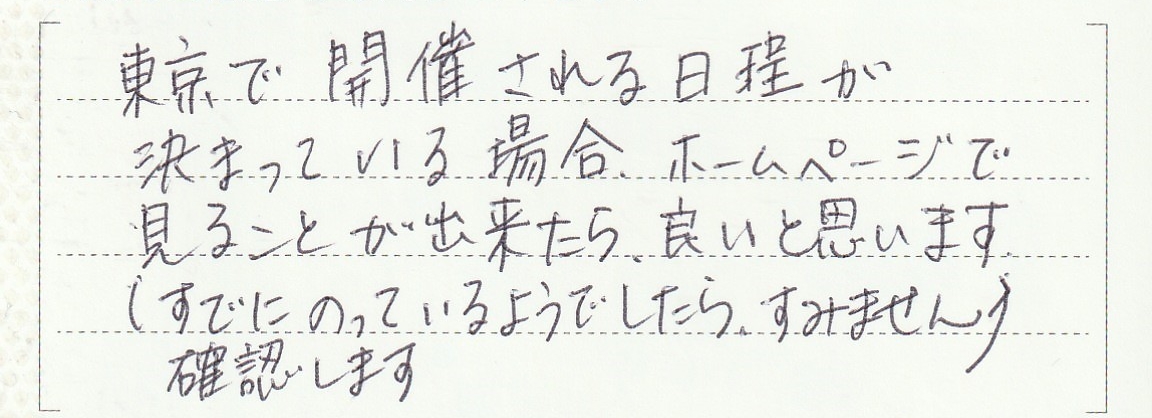 東京で開催される日程が
決まっている場合、ホームページで
見ることが出来たら、良いと思います。
(すでにのっているようでしたら、すみません)
確認します